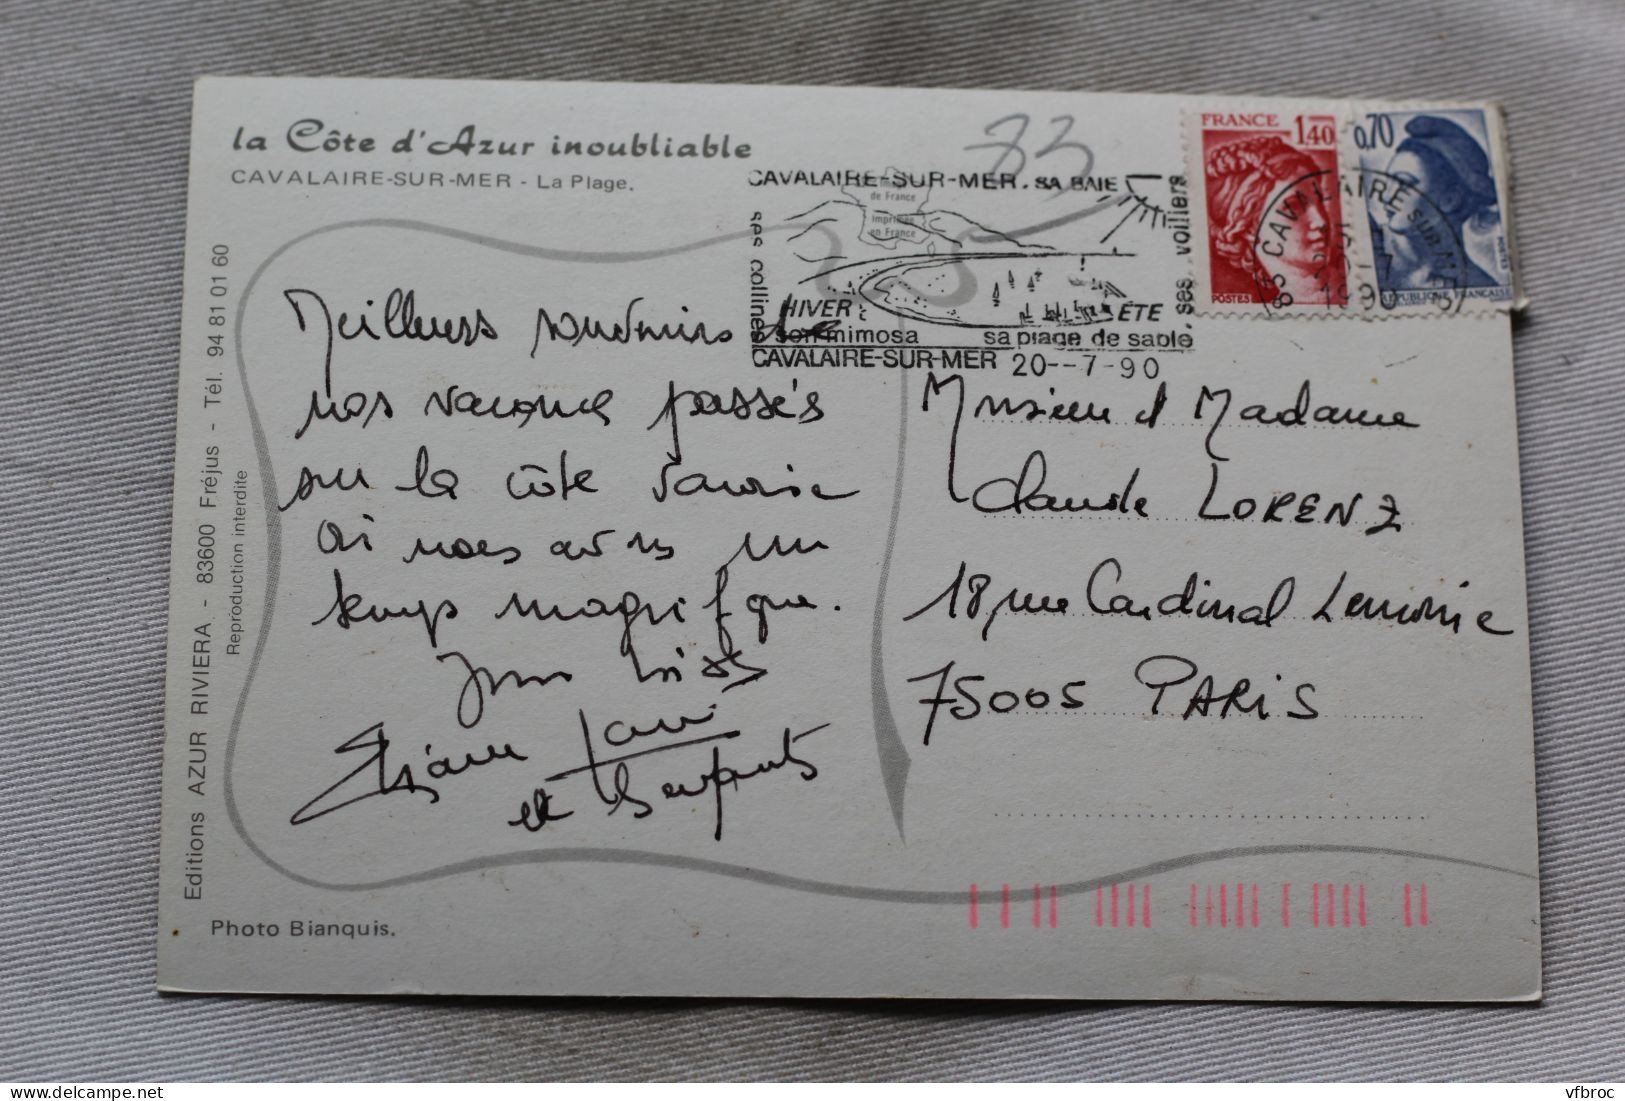 la Côte d'Azur inoubliable
CAVALAIRE-SUR-MER - La Plage.
83
CAVALAIRE-SUR-MER. SA BAIE
de France
Imprimée
en France
ses collines
ses voiliers
HIVER :
son mimosa
ÉTÉ
sa plage de sable
CAVALAIRE-SUR-MER 20--7-90
FRANCE
1,40
POSTES
0,70
RÉPUBLIQUE FRANÇAISE
83 CAVALAIRE SUR MER
Meilleurs souvenirs de
nos vacances passés
sur la côte varoise
où nous avons un
temps magnifique.
et les enfants
Monsieur et Madame
Claude LORENZ
18 rue Cardinal Lemoine
75005 PARIS
Editions AZUR RIVIERA - 83600 Fréjus - Tél. 94 81 01 60
Reproduction interdite
Photo Bianquis.
vfbroc